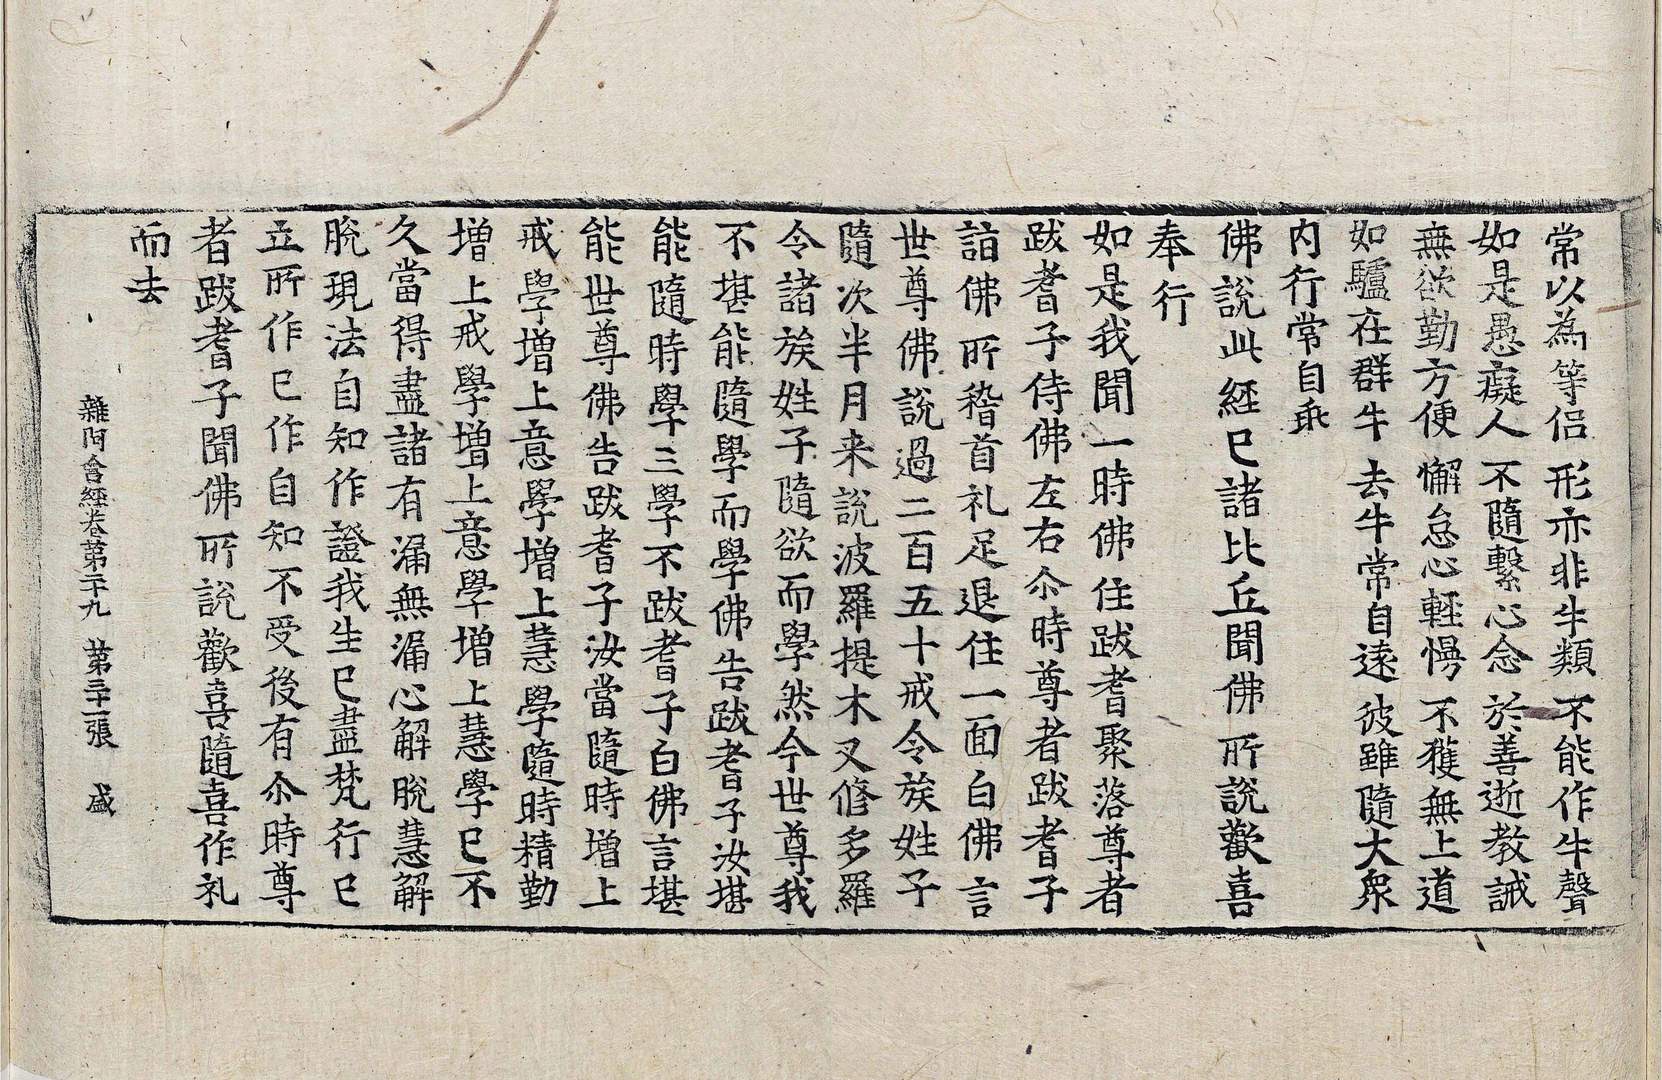 常以為等侣 形亦非牛類 不能作牛聲
如是愚癡人 不隨繫心念 於善逝教誡
無欲勤方便 懈怠心輕慢 不獲無上道
如驢在群牛 去牛常自遠 彼雖隨大衆
内行常自乖
佛說此經已諸比丘聞佛所說歡喜
奉行
如是我聞一時佛住跋耆聚落尊者
跋耆子侍佛左右尒時尊者跋耆子
詣佛所稽首礼足退住一面白佛言
世尊佛說過二百五十戒令族姓子
隨次半月来說波羅提木叉修多羅
令諸族姓子隨欲而學然今世尊我
不堪能隨學而學佛告跋耆子汝堪
能隨時學三學不跋耆子白佛言堪
能世尊佛告跋耆子汝當隨時增上
戒學增上意學增上慧學隨時精勤
增上戒學增上意學增上慧學已不
久當得盡諸有漏無漏心解脫慧解
脫現法自知作證我生已盡梵行已
立所作已作自知不受後有尒時尊
者跋耆子聞佛所說歡喜隨喜作礼
而去
雜阿含經卷第二十九 第三十一張 盛